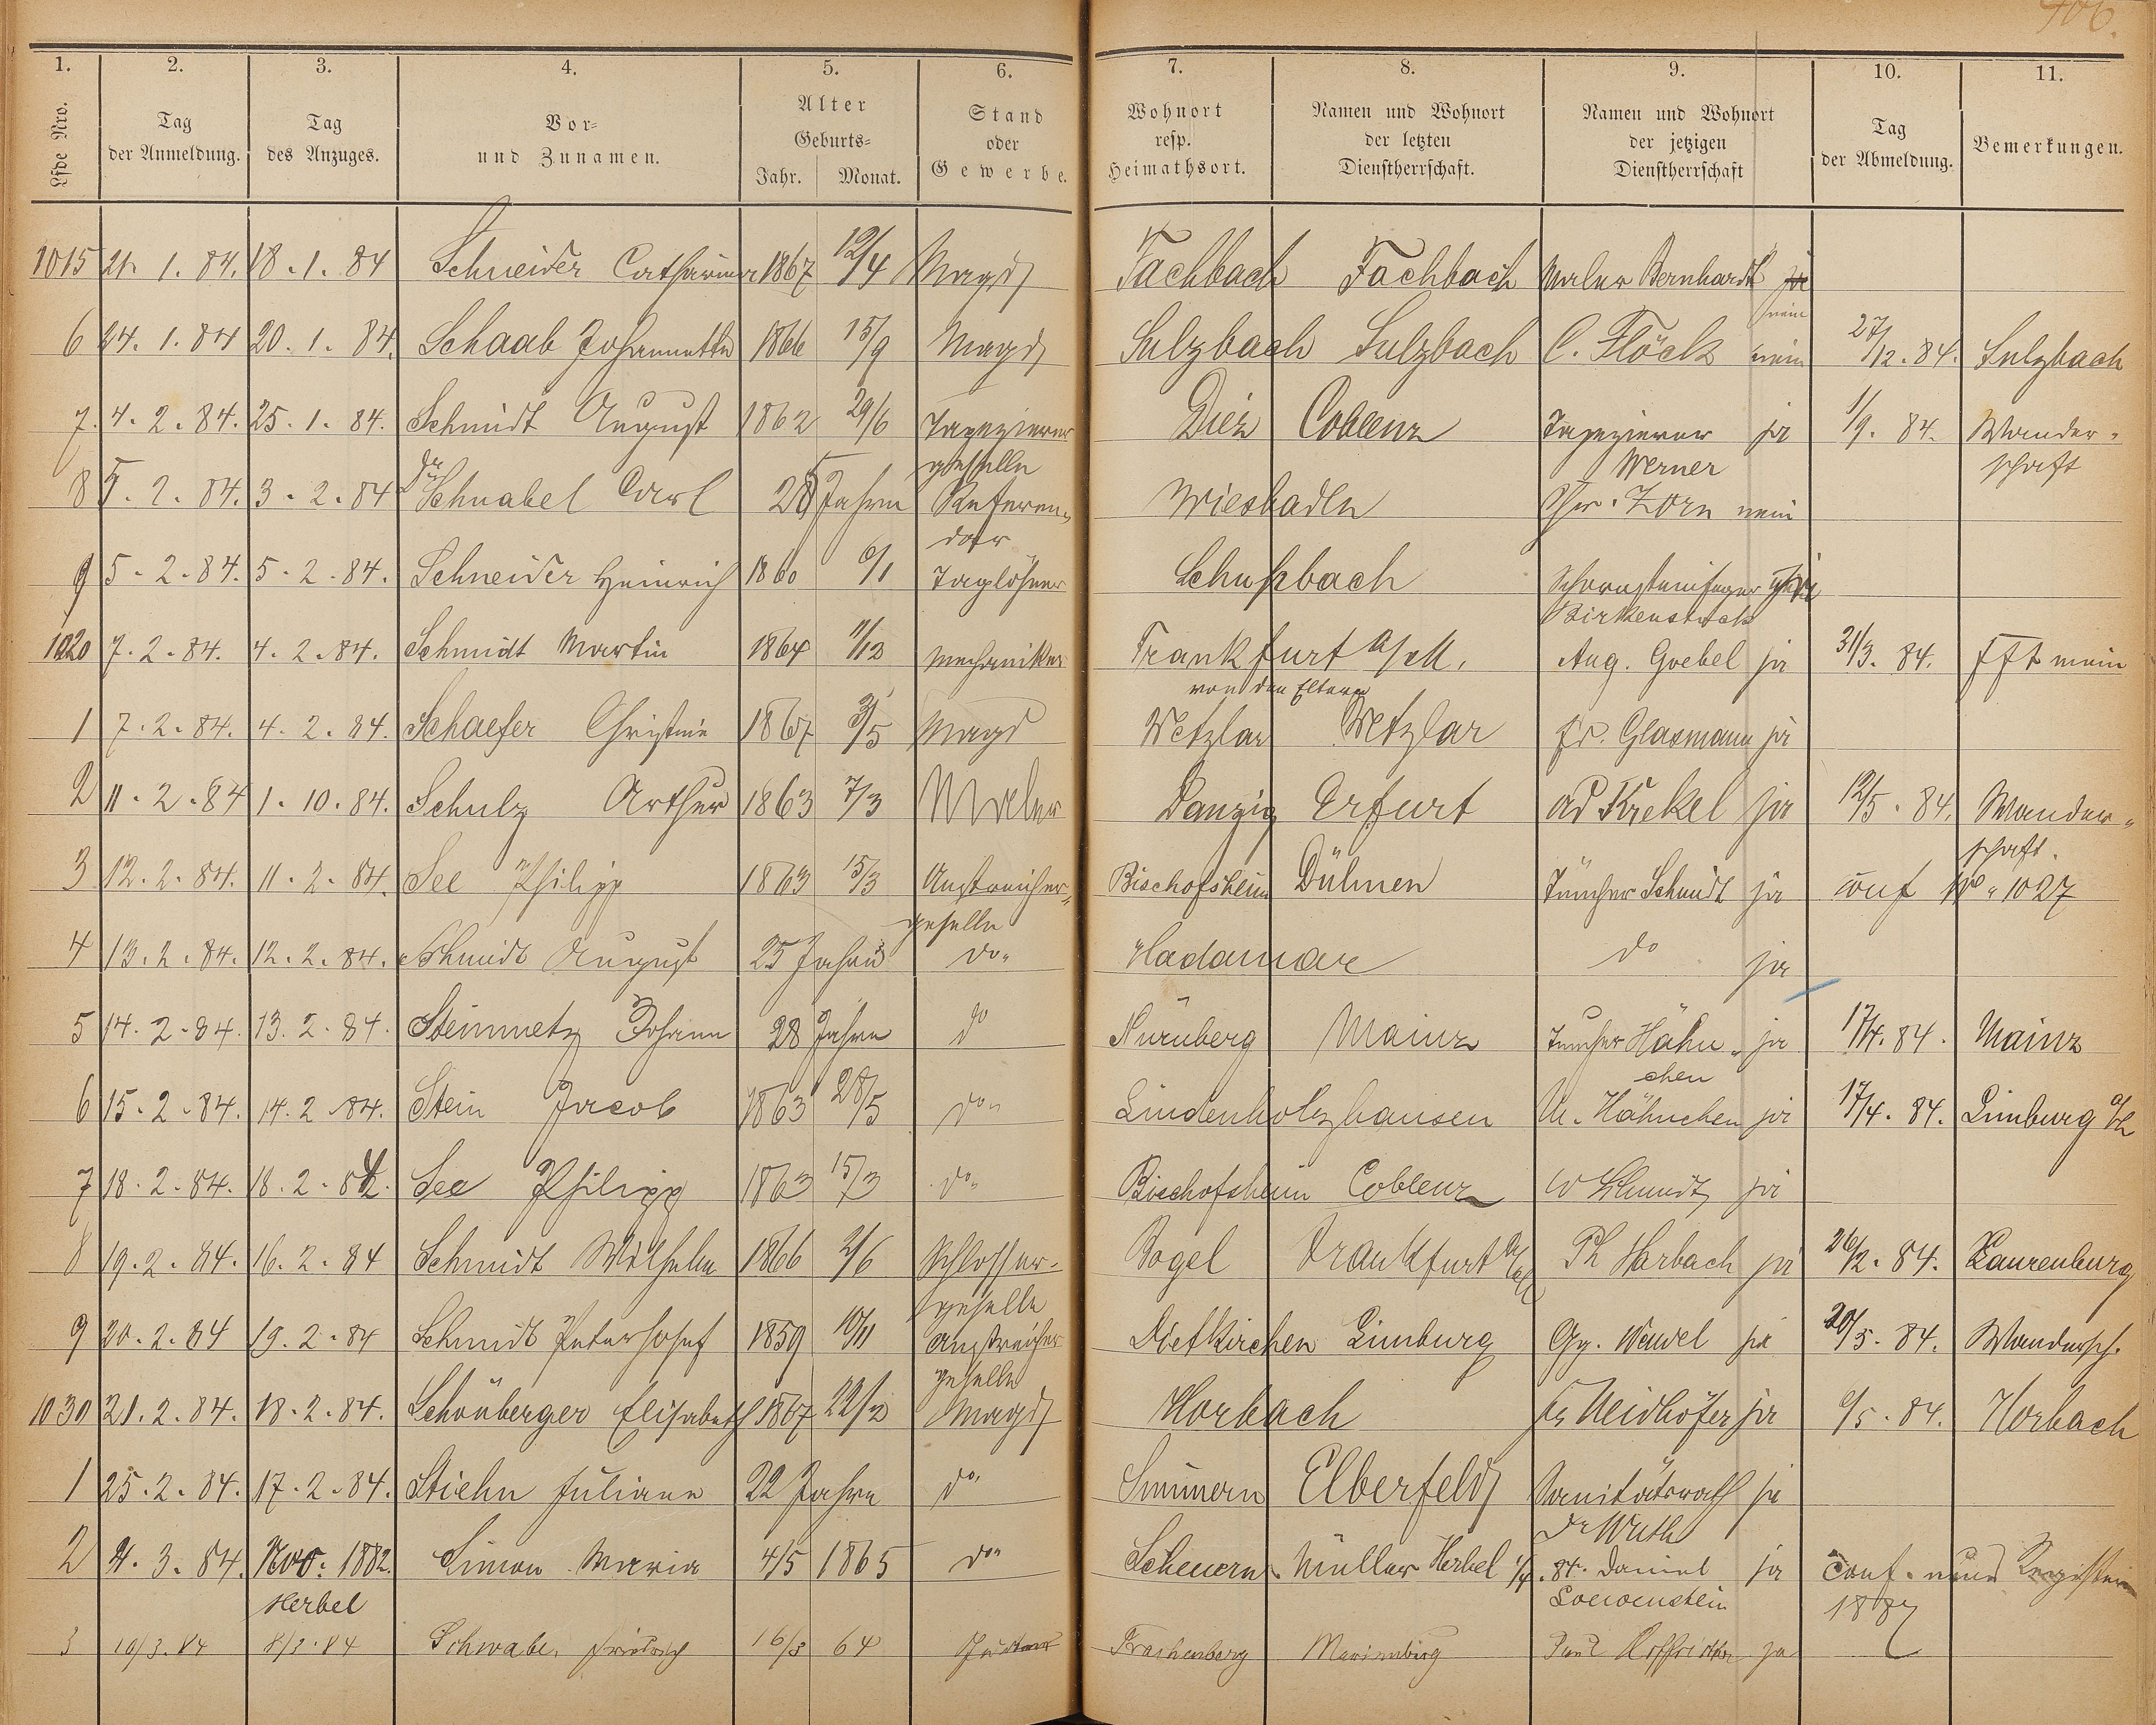 406.
1. 2. 3. 4. 5. 6. 7. 8. 9. 10. 11.
Lfde Nro. Tag der Anmeldung. Tag des Anzuges. Vor- und Zunamen. Alter Geburts- Jahr. Monat. Stand oder Gewerbe. Wohnort resp. Heimathsort. Namen und Wohnort der letzten Dienstherrschaft. Namen und Wohnort der jetzigen Dienstherrschaft Tag der Abmeldung. Bemerkungen.
1015 21. 1. 84. 18. 1. 84 Schneider Catharina 1867 12/4 Magd Fachbach Fachbach Maler Bernhardt ja
nein
6 24. 1. 84 20. 1. 84. Schaab Johannette 1866 15/9 Magd Sulzbach Sulzbach C. Flöck nein 27/12. 84. Sulzbach
7. 4. 2. 84. 25. 1. 84. Schmidt August 1862 29/6 Tapezierer Diez Coblenz Tapezierer ja 1/9. 84. Wander-
geselle Werner schaft
8 5. 2. 84. 3. 2. 84 Dr Schnabel Carl 28 Jahre Referen- Wiesbaden Zorn nein
dar
9 5. 2. 84. 5. 2. 84. Schneider Heinrich 1860 6/1 Taglöhner Schupbach Schornsteinfeger ja
Birkenstock
1020 7. 2. 84. 4. 2. 84. Schmidt Martin 1864 11/12 Mechaniker Frankfurt a/M. Aug. Goebel ja 31/3. 84. Fft
von den Eltern
1 7. 2. 84. 4. 2. 84. Schaefer Christine 1867 3/5 Magd Wetzlar Wetzlar Fr. Glasmann ja
2 11. 2. 84 1. 10. 84. Schulz Arthur 1863 7/3 Maler Danzig Erfurt ad Krekel ja 12/5. 84. Wander-
schaft.
3 12. 2. 84. 11. 2. 84. See Philipp 1863 15/3 Anstreicher- Bischofsheim Dülmen Tüncher Schmidt ja conf No 1027
geselle
4 13. 2. 84. 12. 2. 84. Schmidt August 25 Jahre do. Hadamar do ja
5 14. 2. 84. 13. 2. 84. Steinmetz Johann 28 Jahre do Nürnberg Mainz Tüncher Hähn- ja 17/4. 84. Mainz
chen
6 15. 2. 84. 14. 2. 84. Stein Jacob 1863 28/5 do. Lindenholzhausen M. Hähnchen ja 17/4. 84. Limburg a/L
7 18. 2. 84. 18. 2. 84. See Philipp 1863 15/3 do. Bischofsheim Coblenz W Schmidt ja
8 19. 2. 84. 16. 2. 84 Schmidt Wilhelm 1866 2/6 Schlosser- Bogel Frankfurt a/M Ph Harbach ja 26/2. 84. Laurenburg
geselle
9 20. 2. 84 19. 2. 84 Schmidt Peter Josef 1859 10/11 Anstreicher Dietkirchen Limburg Gg. Wewel ja 20/5. 84. Wandersch.
geselle
1030 21. 2. 84. 18. 2. 84. Schönberger Elisabeth 1867 22/2 Magd Horbach Fr Neidhöfer ja 6/5. 84. Horbach
1 25. 2. 84. 17. 2. 84. Stiehn Juliane 22 Jahre do. Simmern Elberfeld Sanitätsrath ja
Dr
2 4. 3. 84. Nov. 1882. Simon Maria 4/5 1865 do. Scheuern Müller Herbel 1/4. 84. Daniel ja conf. neues Register
Herbel Loewenstein 1887
3 10/3. 84 8/3. 84 Schwabe, Friedrich 16/3 64 Trachenberg Marienburg Paul ja